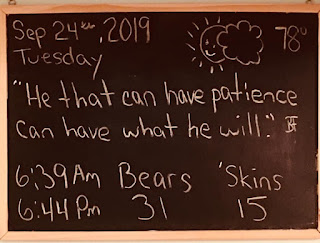 Sep 24th, 2019 78°
Tuesday
"He that can have patience
can have what he will."
6:39 Am Bears 'Skins
6:44 Pm 31 15